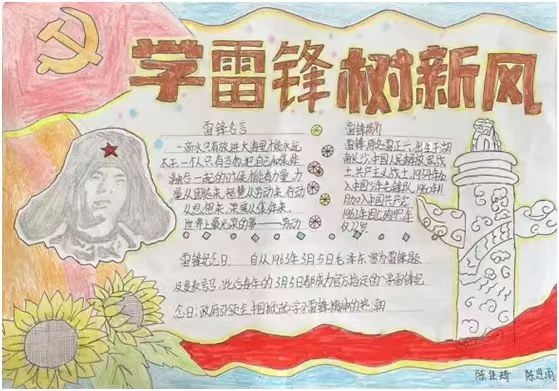 学雷锋 树新风
雷锋名言
一滴水只有放进大海里才能永远
不干,一个人只有当他把自己和集体
融合一起的时候才能有力量,力
量从团结来,智慧从劳动来,行动
从思想来,荣誉从集体来。
世界上最光荣的事——劳动
雷锋简介
雷锋,原名雷正兴,出生于湖
南长沙,中国人民解放军战
士,共产主义战士,1954年加
入中国少年先锋队,1960年11
月加入中国共产党
1962年因公殉职,年
仅22岁
雷锋纪念日 自从1963年3月5日毛泽东 雷锋题
此后每年的3月5日都成为 学雷锋纪
念日,政府 学习雷锋精神的热潮
陈 琦 陈思